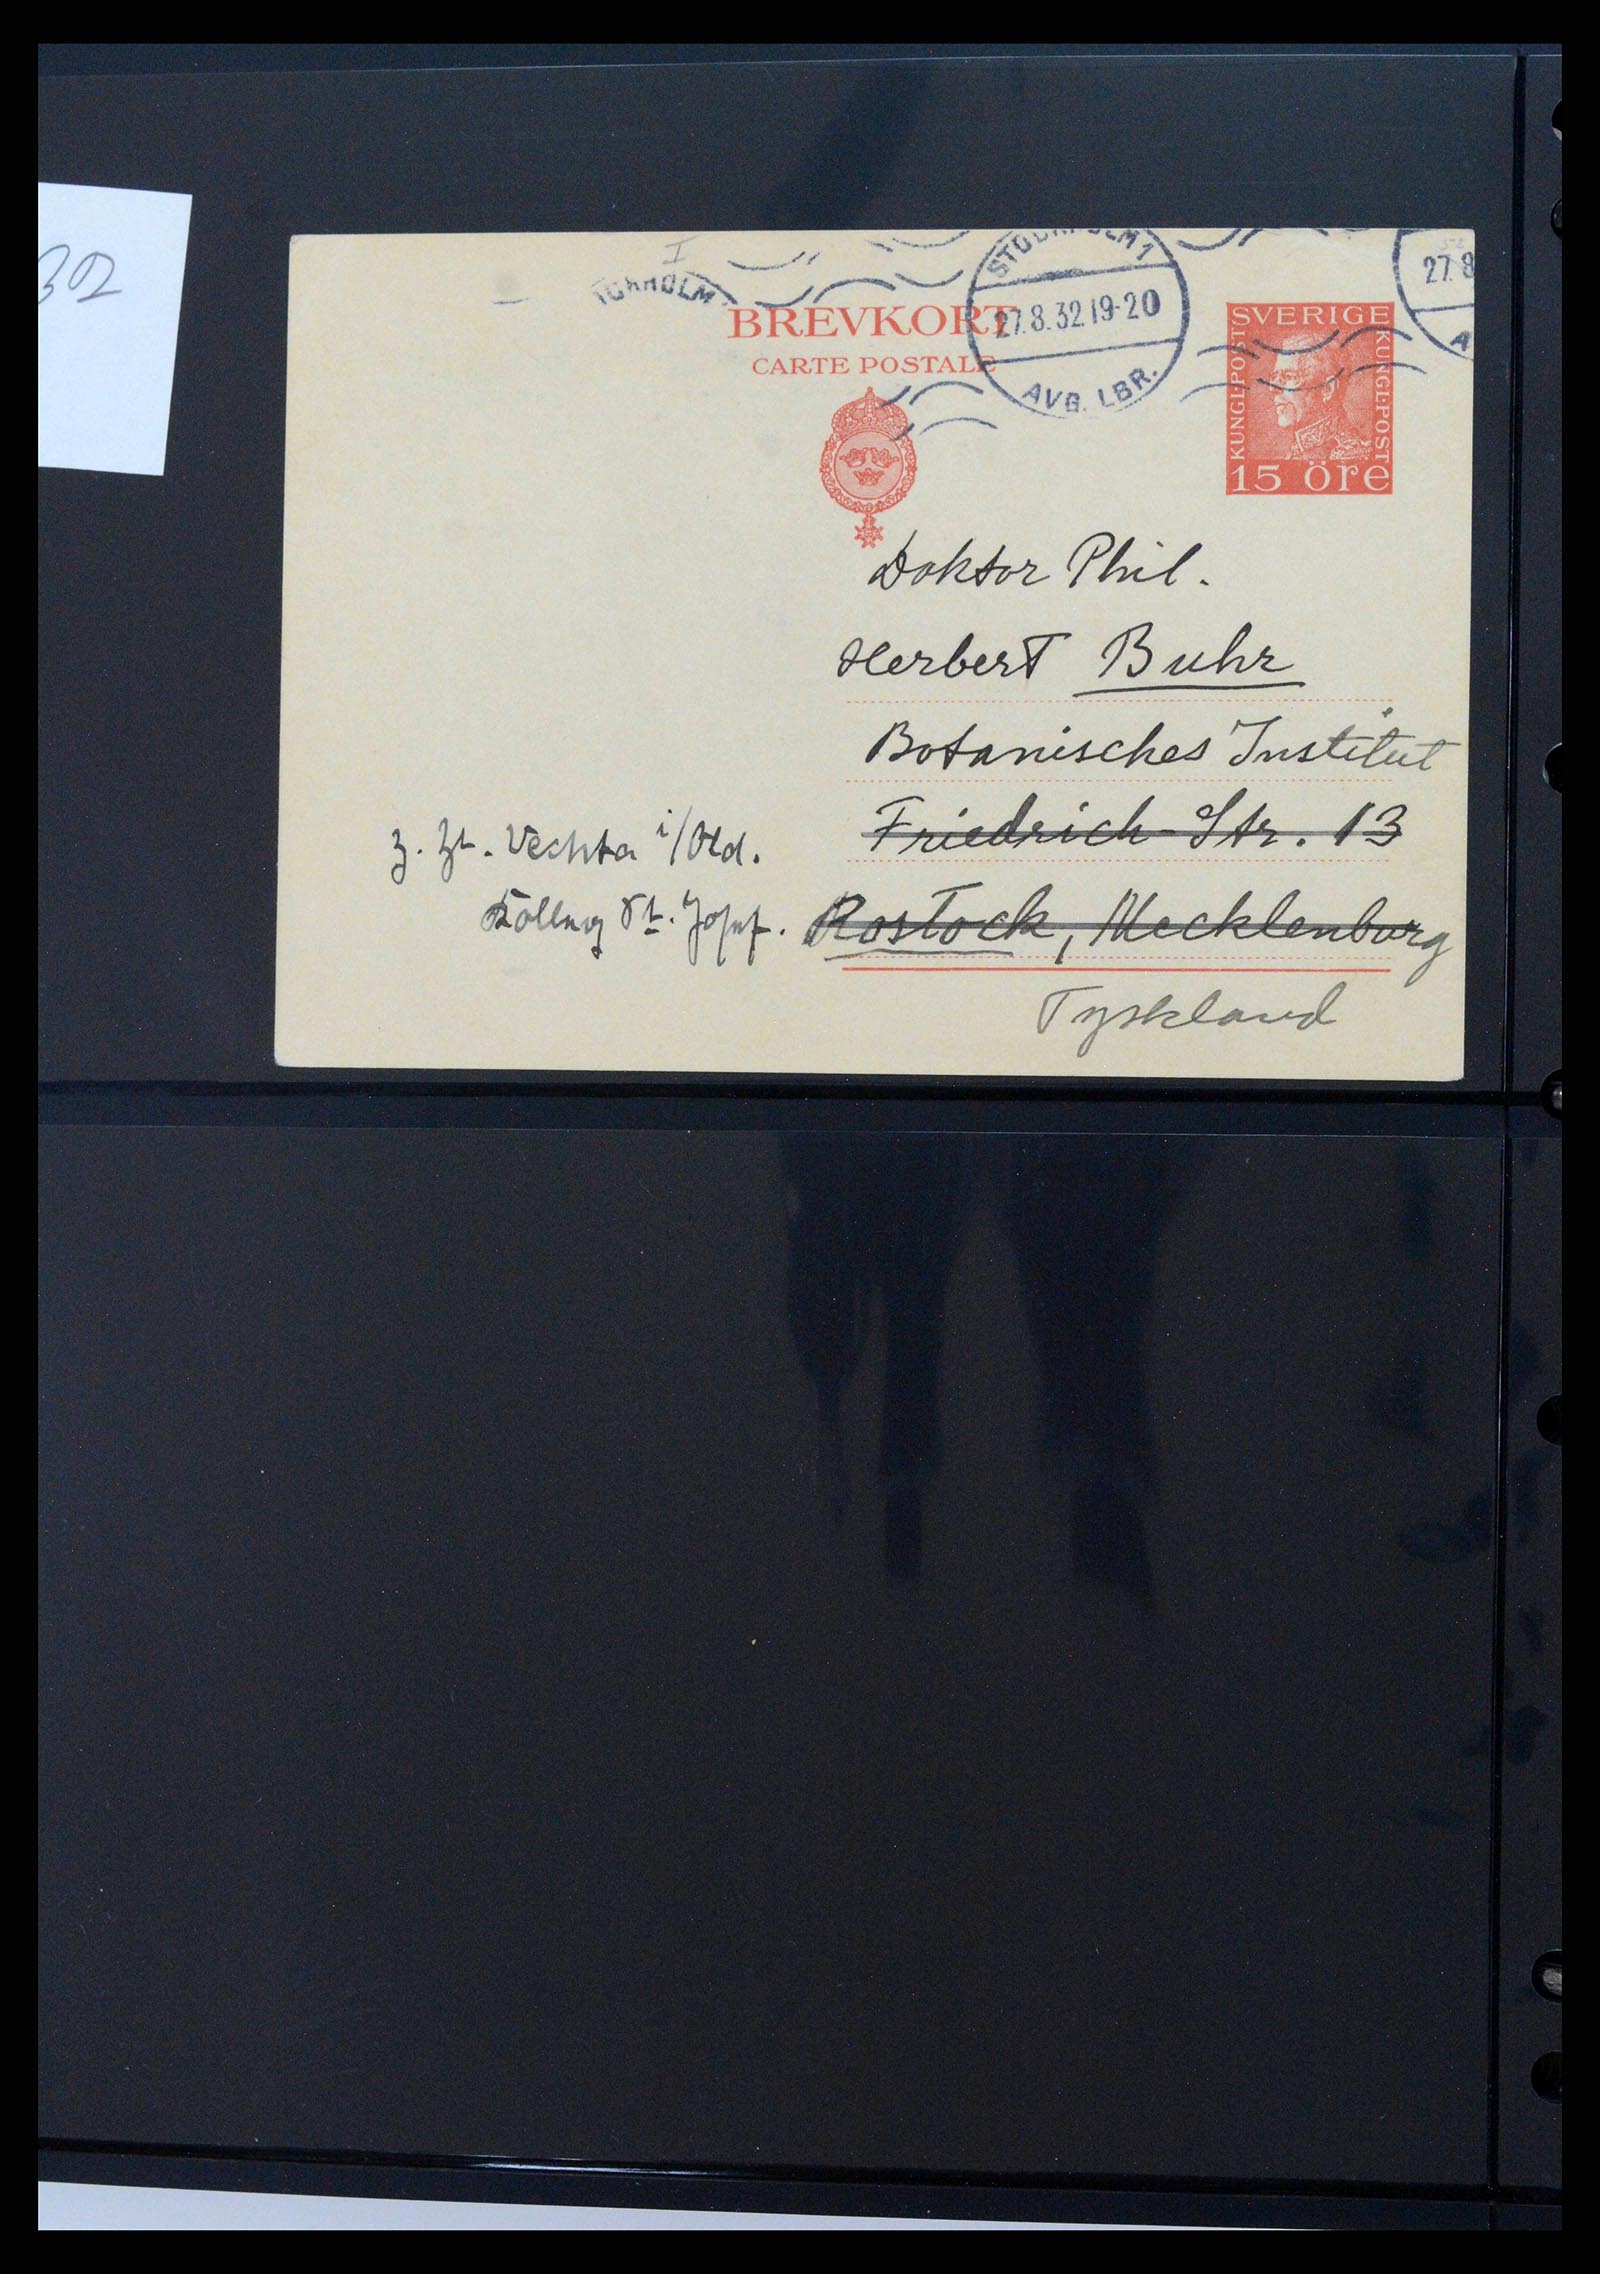 32
STOCKHOLM 1
27.8.32.19-20
AVG. LBR.
27.8
A
BREVKORT
CARTE POSTALE
SVERIGE
KUNGL:POST
KUNGL:POST
15 öre
Doktor Phil.
Herbert Buhr
Botanisches Institut
Friedrich-Str. 13
Rostock, Mecklenburg
Tyskland
z. Zt. Vechta i/Old.
Kolleg St. Josef.